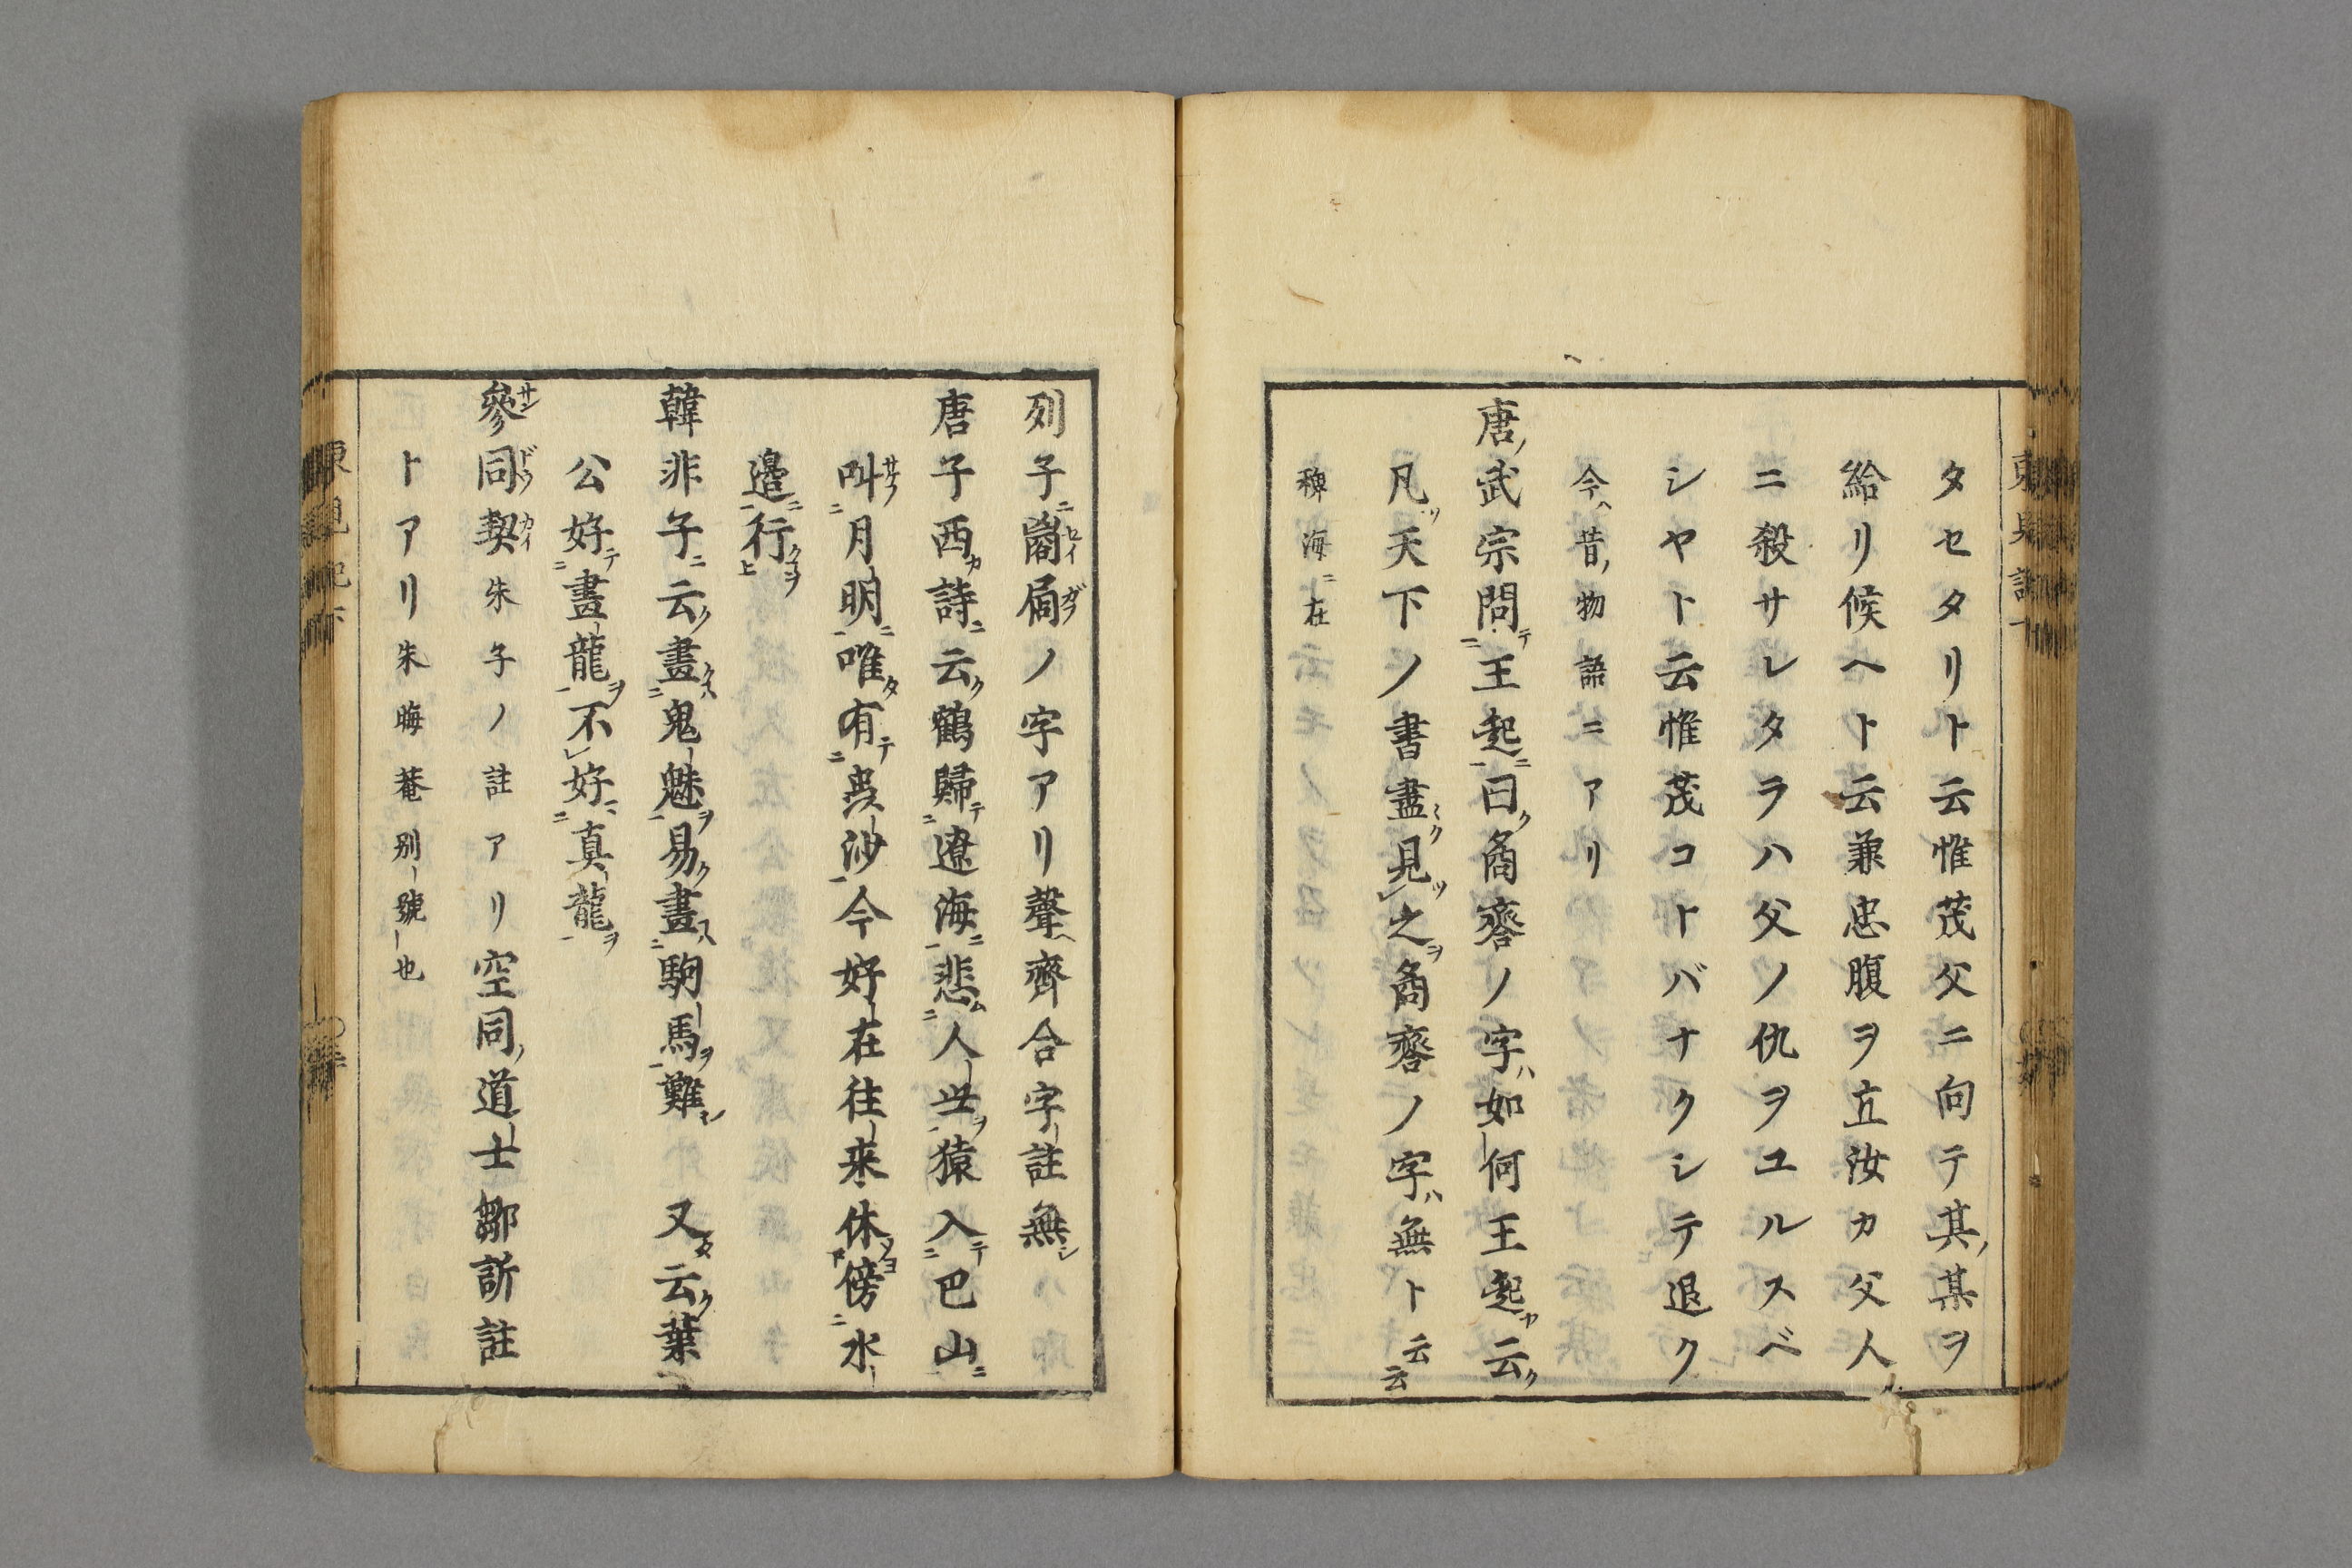 タセタリト云惟茂父ニ向テ其ノ某ヲ
給リ候ヘト云兼忠腹ヲ立汝カ父人
ニ殺サレタラハ父ノ仇ヲユルスベ
シヤト云惟茂コトバナクシテ退ク
今ハ昔ノ物語ニアリ
唐ノ武宗問テ二王起ニ一曰ク𠧧㝯ノ字ハ如何王起カ云ク
凡ソ天下ノ書盡ミク見ツレ之ヲ𠧧㝯ノ字ハ無ト云云
稗海ニ在
列子ニ
ノ字アリ聲ハ齊合字註無シ
唐子西カ詩ニ云ク鶴歸テ二遼海ニ一悲ム二人世ヲ一猿入テ二巴山ニ一
叫サケフ二月明ニ一唯タ有テ二黄沙一今好在往来休傍二水
邉ニ一行クコヲ上
韓非子ニ云ク畫クハ二鬼魅ヲ一易ク畫クハ二駒馬ヲ一難シ 又タ云ク葉
公好テ二畫龍ヲ一不レ好二真龍ヲ一
參サン同ドウ契カイ朱子ノ註アリ空同ノ道士鄒訢註
トアリ朱晦菴別號也
東見記下